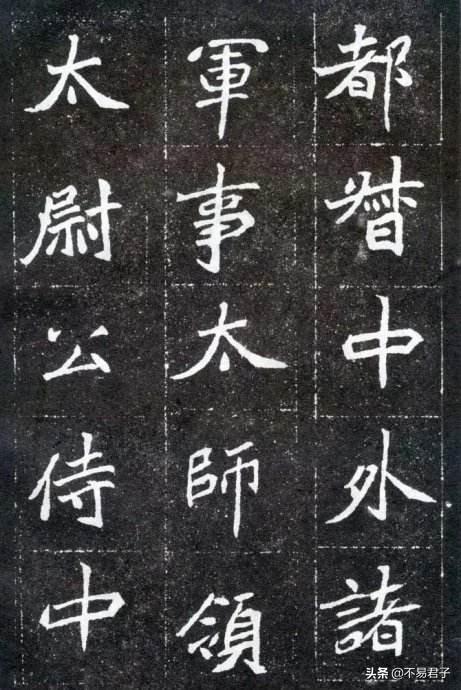 都督中外諸
軍事太師領
太尉公侍中
头条 @不易君子